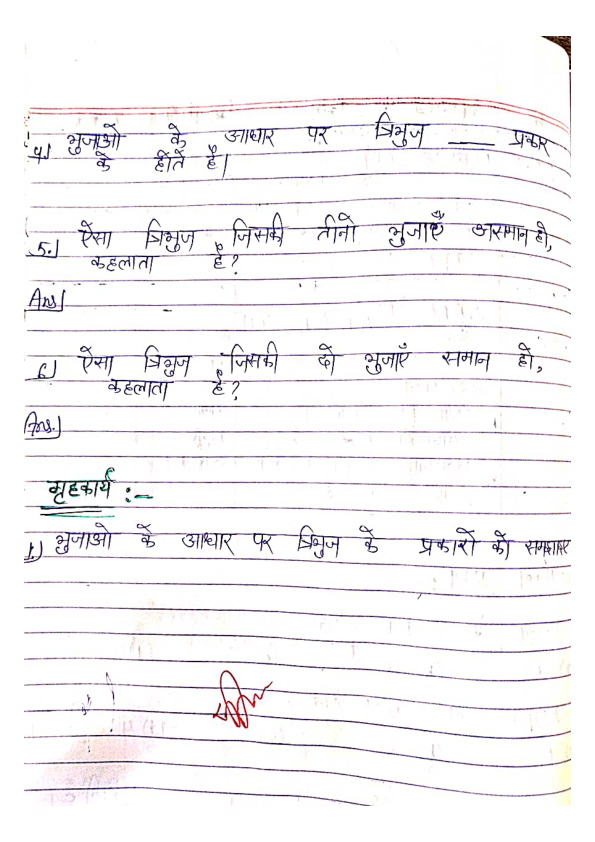 4.] भुजाओं के आधार पर त्रिभुज ___ प्रकार
के होते है।
5.] ऐसा त्रिभुज जिसकी तीनो भुजाएँ असमान हो,
कहलाता है?
Ans]
6] ऐसा त्रिभुज जिसकी दो भुजाएँ समान हो,
कहलाता है?
Ans.]
गृहकार्य :-
1.) भुजाओ के आधार पर त्रिभुज के प्रकारों को समझाइए